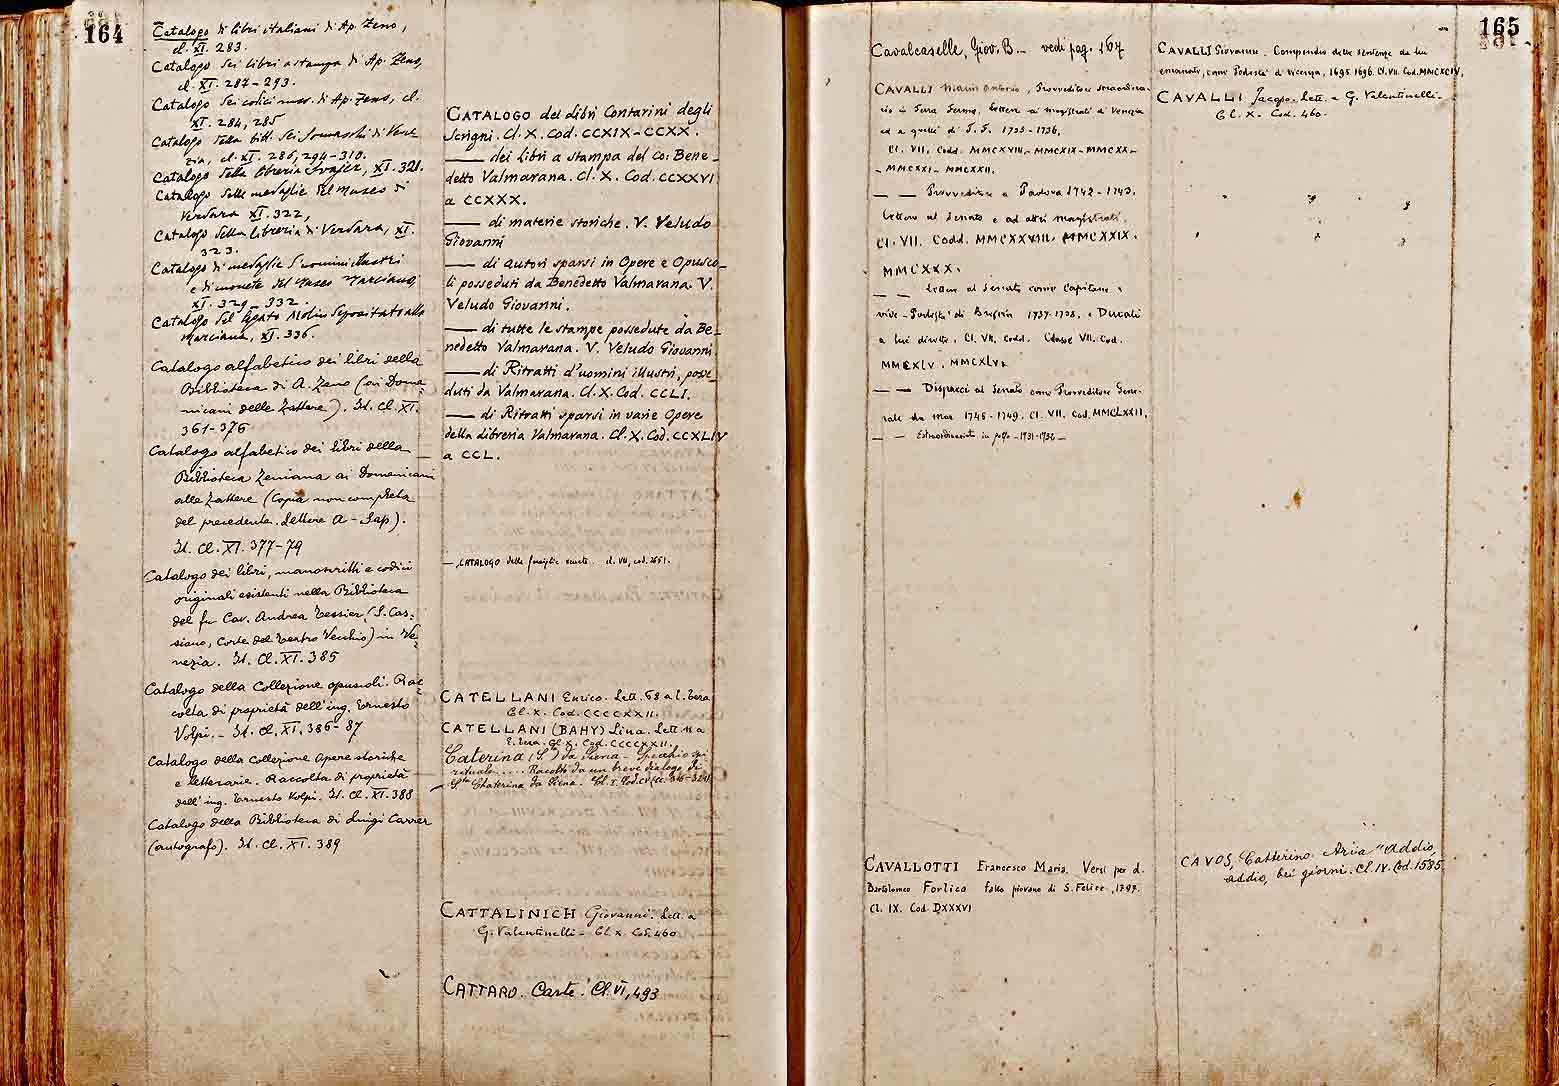 164
Catalogo di libri italiani di Ap. Zeno,
cl. XI. 283.
Catalogo dei libri a stampa di Ap. Zeno,
cl. XI. 287-293.
Catalogo dei codici mss. di Ap. Zeno, cl.
XI. 284, 285
Catalogo della bibl. dei Somaschi di Vene
zia, cl. XI. 286, 294-310.
Catalogo della libreria Svajer, XI. 321.
Catalogo delle medaglie del Museo di
Verdara XI. 322,
Catalogo della libreria di Verdara, XI.
323.
Catalogo di medaglie d'uomini illustri
e di monete del Museo Marciano,
XI. 329-332.
Catalogo del legato Molin depositato alla
Marciana, XI. 336.
Catalogo alfabetico dei libri della
Biblioteca di A. Zeno (ai Dome-
nicani delle Zattere). It. Cl. XI.
361-376
Catalogo alfabetico dei libri della
Biblioteca Zeniana ai Domenicani
alle Zattere (Copia non completa
del precedente. Lettere A - Sap).
It. Cl. XI. 377-79
Catalogo dei libri, manoscritti e codici
originali esistenti nella Biblioteca
del fu Cav. Andrea Tessier (S. Cas-
siano, Corte del Teatro Vecchio) in Ve-
nezia. It. Cl. XI. 385
Catalogo della Collezione opuscoli. Rac-
colta di proprietà dell'ing. Ernesto
Volpi. - It. Cl. XI. 386-87
Catalogo della Collezione Opere storiche
e letterarie. Raccolta di proprietà
dell'ing. Ernesto Volpi. It. Cl. XI. 388
Catalogo della Biblioteca di Luigi Carrer
(autografo). It. Cl. XI. 389
CATALOGO dei Libri Contarini degli
Scrigni. Cl. X. Cod. CCXIX-CCXX.
— dei Libri a stampa del co: Bene-
detto Valmarana. Cl. X. Cod. CCXXVI
a CCXXX.
— di materie storiche. V. Veludo
Giovanni
— di autori sparsi in Opere e Opusco-
li posseduti da Benedetto Valmarana. V.
Veludo Giovanni.
— di tutte le stampe possedute da Be-
nedetto Valmarana. V. Veludo Giovanni.
— di Ritratti d'uomini illustri, posse-
duti da Valmarana. Cl. X. Cod. CCLI.
— di Ritratti sparsi in varie Opere
della Libreria Valmarana. Cl. X. Cod. CCXLIV
a CCL.
— CATALOGO delle famiglie venete. cl. VII, cod. 2651.
CATELLANI Enrico. Lett. 68 a E. Teza
Cl. X. Cod. CCCCXXII.
CATELLANI (BAHY) Lina. Lett. 11 a
E. Teza. Cl. X. Cod. CCCCXXII.
Caterina (S.) da Siena - Specchio spi
rituale.... Racolto da un breve dialogo di
Sta Chaterina da Siena. Cl. I. Cod. CV (cc. 316-324)
CATTALINICH Giovanni. Lett. a
G. Valentinelli - Cl. X. Cod. 460
CATTARO. Carte. Cl. VI, 493
165
Cavalcaselle, Giov. B. - vedi pag. 167
CAVALLI Marin Antonio, Provveditore straordina-
rio in Terra Ferma, Lettere ai magistrati di Venezia
ed a quelli di T. F. 1735-1736,
Cl. VII. Codd. MMCXVIII - MMCXIX - MMCXX -
- MMCXXI - MMCXXII.
— — Provveditore a Padova 1742-1743.
Lettere al Senato e ad altri magistrati.
Cl. VII. Codd. MMCXXVIII. MMCXXIX.
MMCXXX.
— — Lettere al Senato come Capitano e
vice-Podestà di Brescia 1737-1738, e Ducali
a lui dirette. Cl. VII. Codd. Classe VII. Cod.
MMCXLV. MMCXLVI.
— — Dispacci al Senato come Provveditore Gene-
rale da mar 1745-1749. Cl. VII. Cod. MMCLXXII.
— — Estraordinario in Golfo - 1731-1732 -
CAVALLOTTI Francesco Maria. Versi per d.
Bartolomeo Forlico fatto piovano di S. Felice, 1797.
Cl. IX. Cod. DXXXVI
CAVALLI Giovanni. Compendio delle sentenze da lui
emanate, come Podestà di Vicenza, 1695.1696. Cl. VII. Cod. MMCXCIV,
CAVALLI Jacopo. Lett. a G. Valentinelli -
Cl. X. Cod. 460.
CAVOS, Catterino. Aria "Addio,
addio, bei giorni. Cl. IV. Cod. 1585.